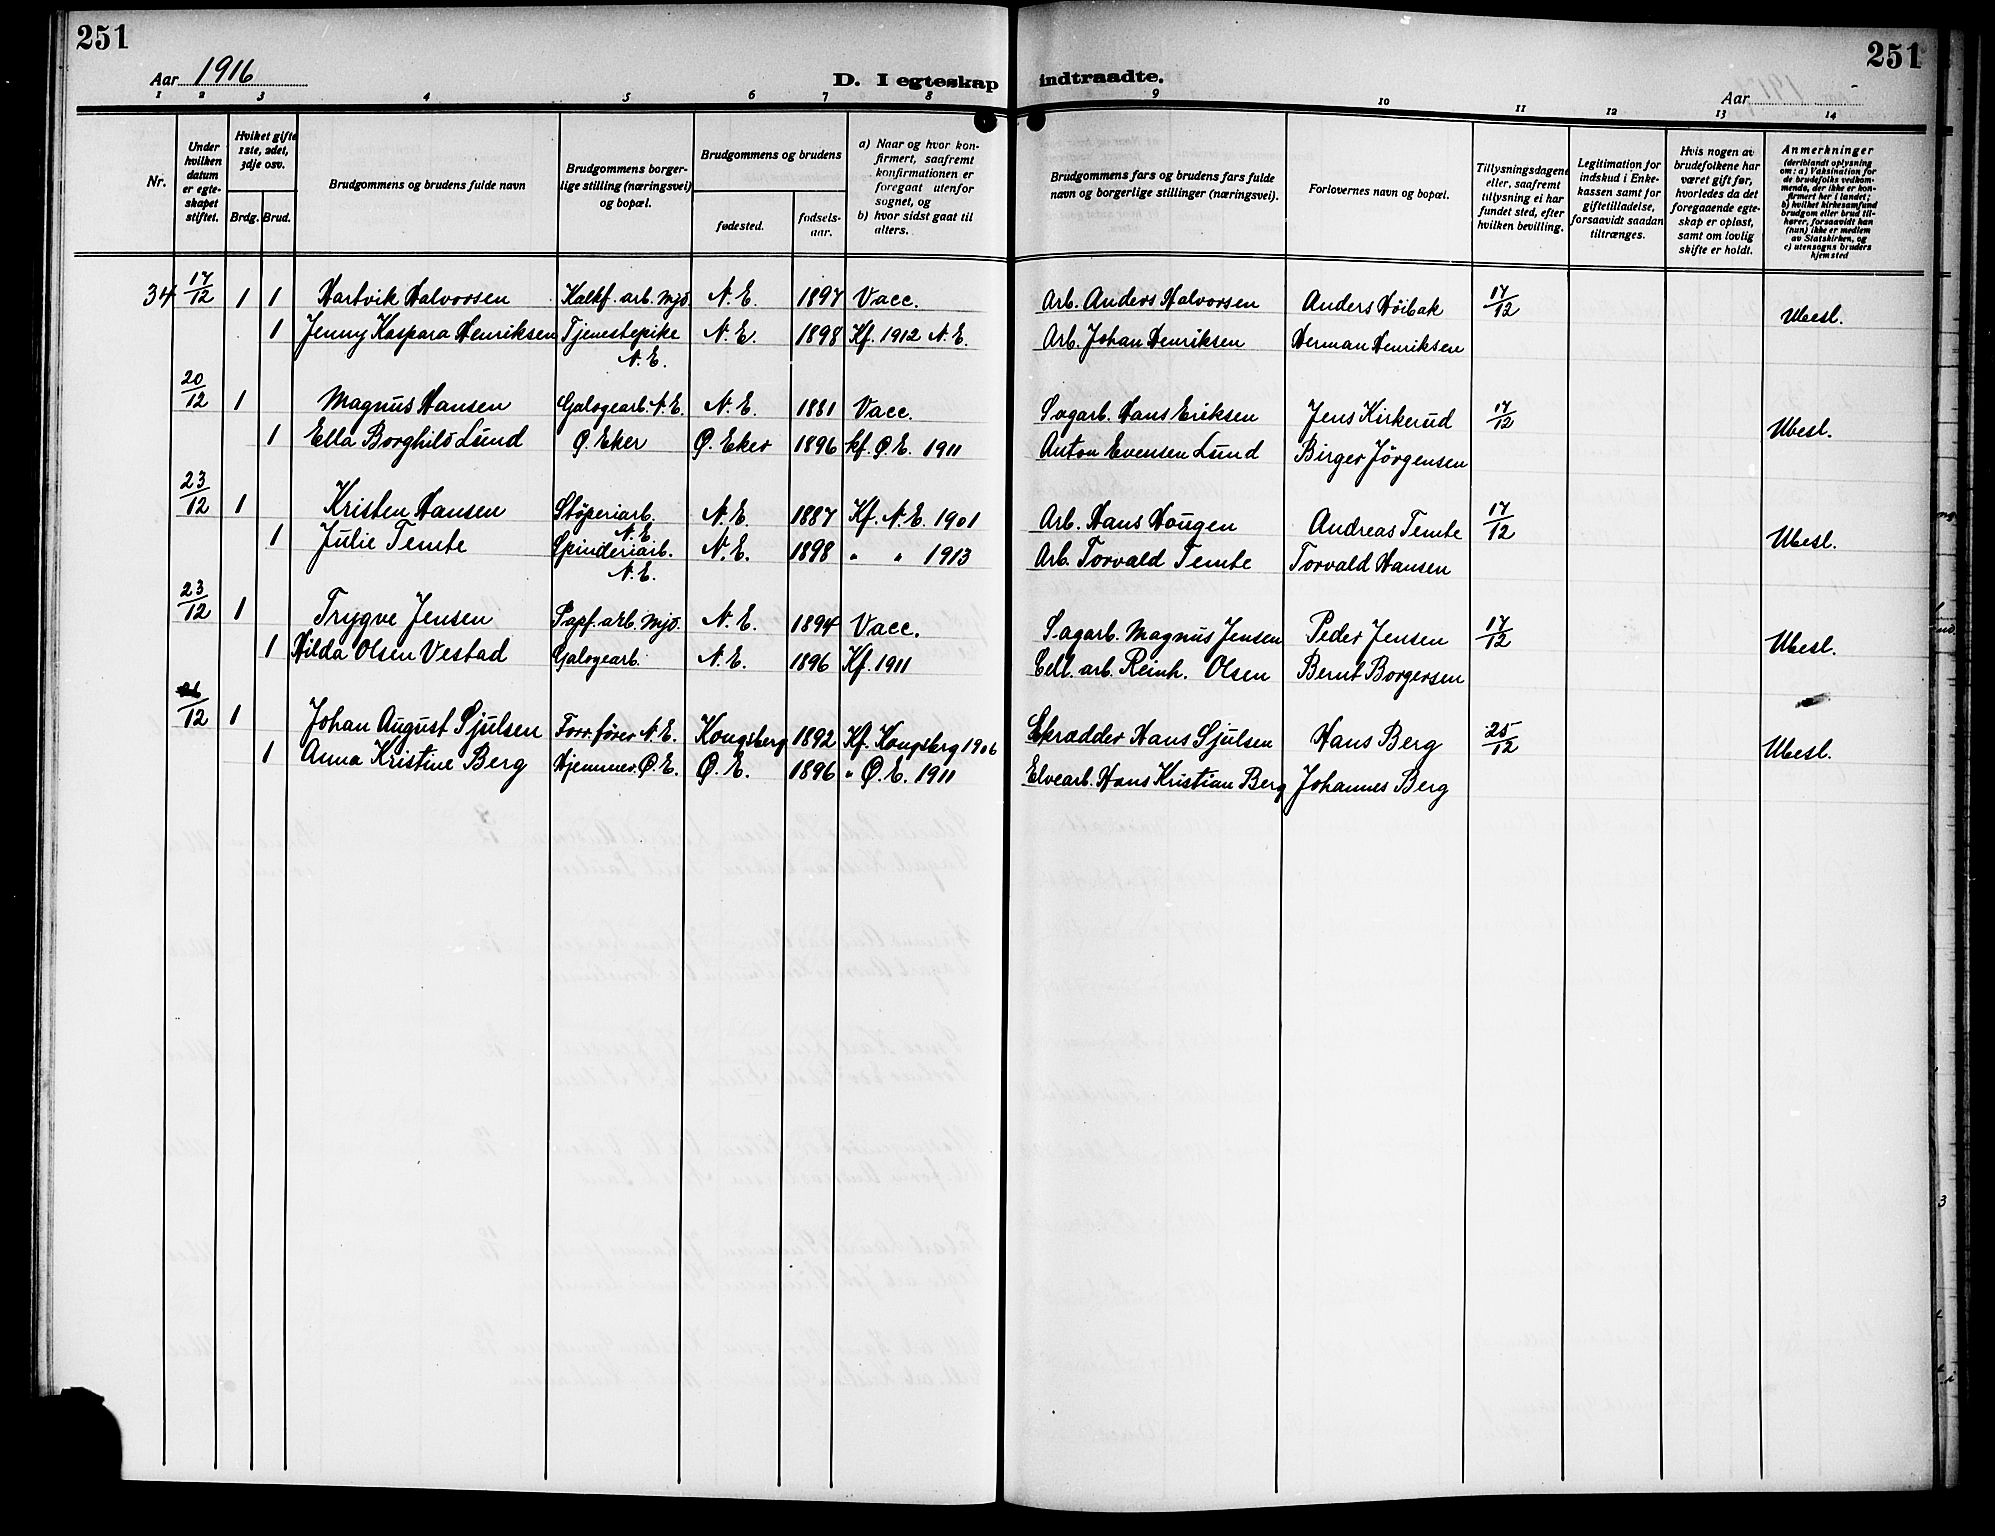 251
Aar 1916
D. I egteskap
indtraadte.
251
Aar
1 2 3 4 5 6 7 8
9 10 11 12 13 14
Nr.
Under hvilken datum er egteskapet stiftet.
Hvilket gifte 1ste, 2det, 3dje osv.
Brdg. Brud.
Brudgommens og brudens fulde navn
Brudgommens borgerlige stilling (næringsvei) og bopæl.
Brudgommens og brudens
fødested.
fødselsaar.
a) Naar og hvor konfirmert, saafremt konfirmationen er foregaat utenfor sognet, og
b) hvor sidst gaat til alters.
Brudgommens fars og brudens fars fulde navn og borgerlige stillinger (næringsvei).
Forlovernes navn og bopæl.
Tillysningsdagene eller, saafremt tillysning ei har fundet sted, efter hvilken bevilling.
Legitimation for indskud i Enkekassen samt for giftetilladelse, forsaavidt saadan tiltrænges.
Hvis nogen av brudefolkene har været gift før, hvorledes da det foregaaende egteskap er opløst, samt om lovlig skifte er holdt.
Anmerkninger
(deriblandt oplysning om: a) Vaksination for de brudefolks vedkommende, der ikke er konfirmert her i landet; b) hvilket kirkesamfund brudgom eller brud tilhører, forsaavidt han (hun) ikke er medlem av Statskirken, og c) utensogns bruders hjemsted
34 17/12 1 1 Hartvik Halvorsen Kalkf. arb. Mjd. N. E. 1897 Vacc. Arb. Anders Halvorsen Anders Höibak 17/12 Ubesl.
1 Jenny Kaspara Henriksen Tjenestepike N. E. N. E. 1898 Kf. 1912 N. E. Arb. Johan Henriksen Herman Henriksen
20/12 1 Magnus Hansen Galogearb. N. E. N. E. 1881 Vacc. Sagarb. Hans Eriksen Jens Kirkerud 17/12 Ubesl.
1 Ella Borghild Lund Ø. Eker Ø. Eker 1896 kf. Ø. E. 1911 Anton Evensen Lund Birger Jörgensen
23/12 1 Kristen Hansen Støperiarb. N. E. N. E. 1887 Kf. N. E. 1901 Arb. Hans Hougen Andreas Temte 17/12 Ubesl.
1 Julie Temte Spinderiarb. N. E. N. E. 1898 " " 1913 Arb. Torvald Temte Torvald Hansen
23/12 1 Trygve Jensen Papf. arb. Mjd. N. E. 1894 Vacc. Sagarb. Magnus Jensen Peder Jensen 17/12 Ubesl.
1 Hilda Olsen Vestad Galogearb. N. E. 1896 Kf. 1911 Cell. arb. Reinh. Olsen Bernt Borgersen
26/12 1 Johan August Sjulsen Forr.fører N. E. Kongsberg 1892 Kf. Kongsberg 1906 Skrædder Hans Sjulsen Hans Berg 25/12 Ubesl.
1 Anna Kristine Berg Hjemmev. Ø. E. Ø. E. 1896 " Ø. E. 1911 Elvearb. Hans Kristian Berg Johannes Berg